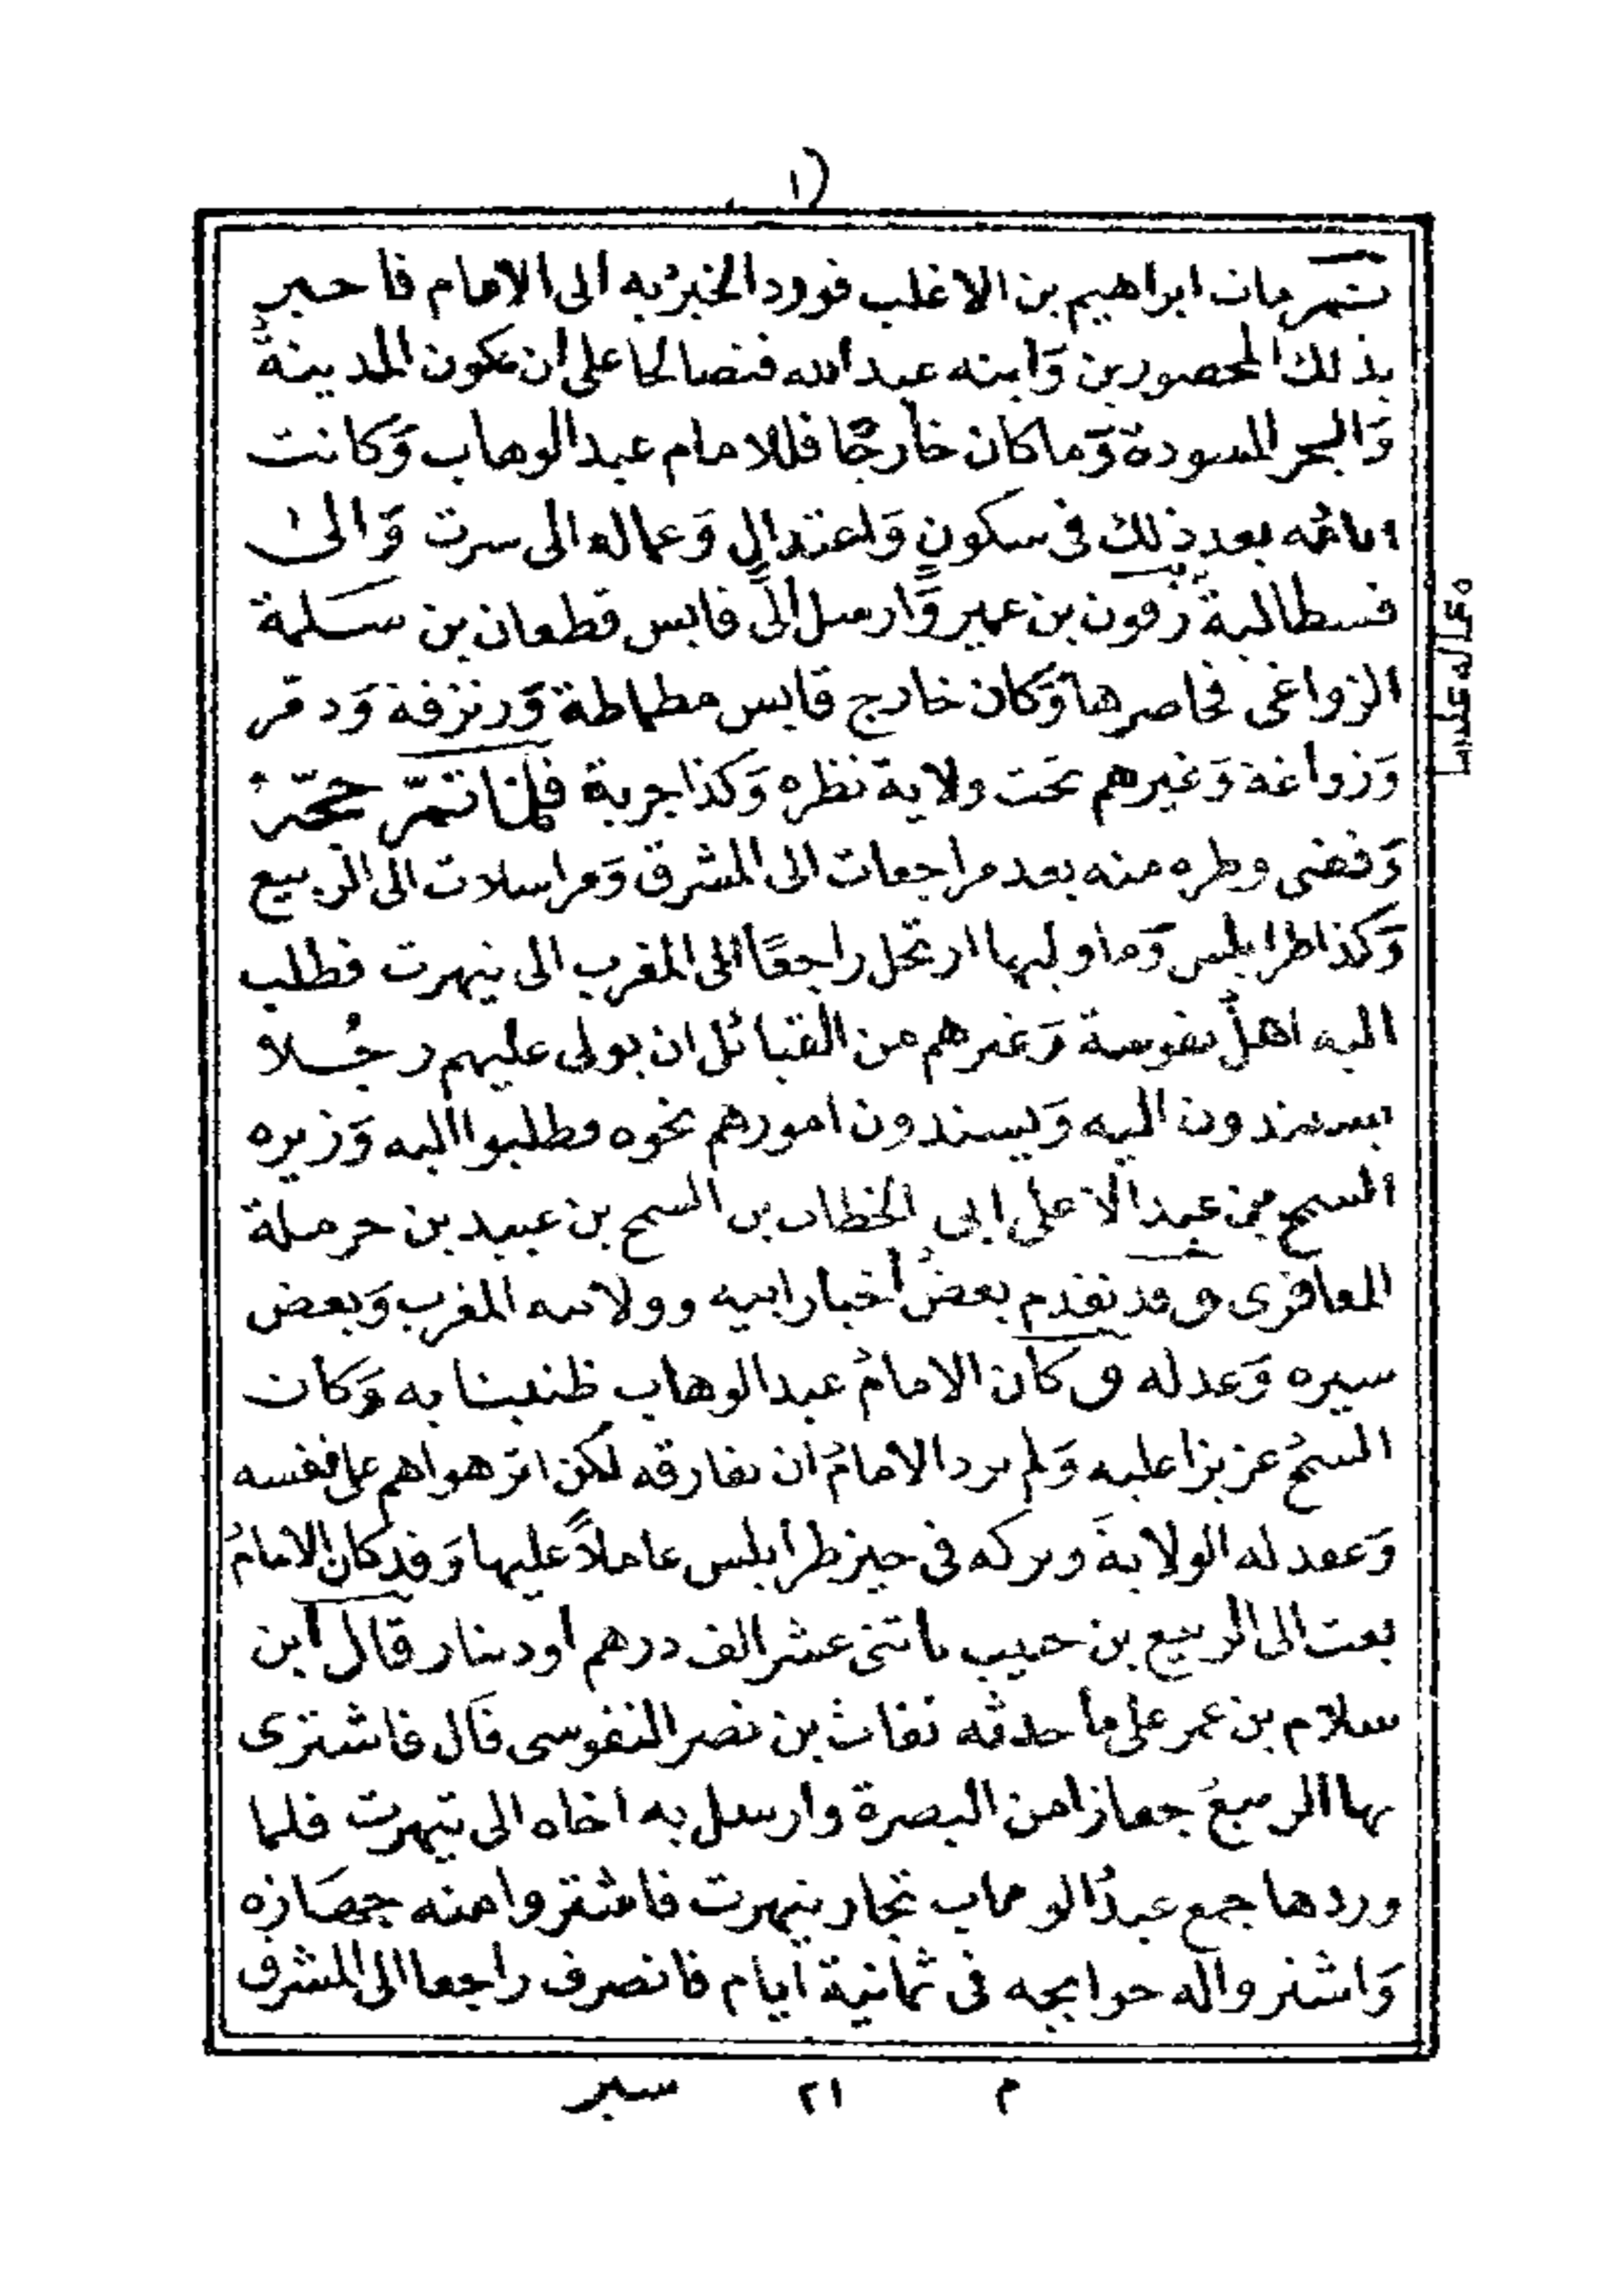 ثم مات ابراهيم بن الاغلب فورد الخبر به الى الامام فاخبر
بذلك المحصورين وَابنه عبد الله فتصالحا على ان تكون المدينةُ
وَالبحر للمسودة وَما كان خارجًا فللامام عبد الوهاب وَكانت
ايامُه بعد ذلك فى سكون وَاعتدال وَعماله الى سرت وَالى
قسطالية زقون بن عمير وَارسل الى قابس قطعان بن سَلمة
الزواغى فحاصرها وَكان خارج قابس مطماطة وَزنزفة وَدمر
وَزواغة وَغيرهم تحت ولاية نظره وَكذا جربة فلمّا تمّ حجّهُ
وَقضى وطره منه بعد مراجعات الى المشرق وَمراسلات الى الربيع
وَكذا طرابلس وَما وليها ارتحل راجعًا الى المغرب الى تيهرت فطلب
اليه اهلُ نفوسة وَغيرهم من القبائل ان يولى عليهم رجُلا
يستندون اليه وَيسندون امورهم نحوه فطلبوا اليه وَزيره
السمح بن عبد الاعلى ابى الخطاب بن السمح بن عبيد بن حرملة
المعافرى وقد تقدم بعضُ اخبار ابيه وولايته المغرب وَبعض
سيره وَعدله وكان الامامُ عبد الوهاب ظنينا به وَكان
السمحُ عزيزا عليه وَلم يرد الامامُ ان يفارقه لكن اثر هواهم على نفسه
وَعقد له الولايةَ وتركه فى حيز طرابلس عاملاً عليها وَقد كان الامامُ
بعث الى الربيع بن حبيب باثنى عشر الف درهم او دينار قال ابن
سلام بن عمر على ما حدثه نفاث بن نصر النفوسى قال فاشترى
بها الربيعُ جهازا من البصرة وارسل به اخاه الى تيهرت فلما
وردها جمع عبدُ الوهاب تجار تيهرت فاشتروا منه جهازه
وَاشتروا له حوايجه فى ثمانية ايام فانصرف راجعا الى المشرق
م ٢١ سير